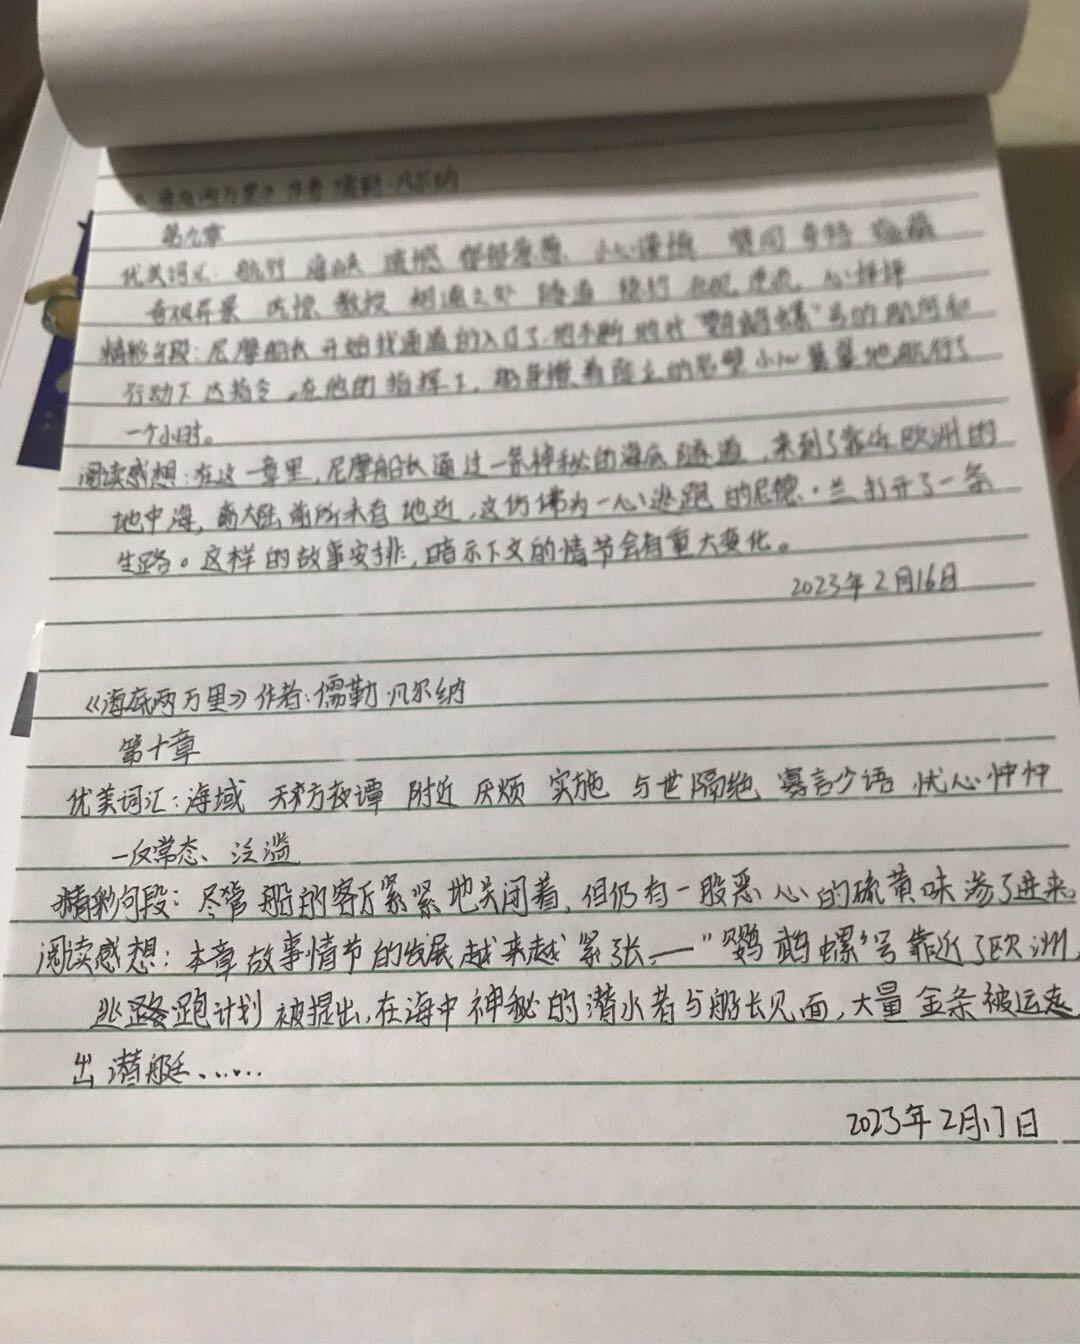 《海底两万里》作者：儒勒·凡尔纳
第九章
优美词汇：航行 海峡 遗憾 郁郁葱葱 小心谨慎 奇特 蕴藏
奇观异景 教授 隧道 绕行 逆流 心怦怦
精彩句段：尼摩船长开始找通道的入口了。他不断地对"鹦鹉螺"号的航向和
行动下达指令。在他的指挥下，陡立的岩壁小心翼翼地航行了
一个小时。
阅读感想：在这一章里，尼摩船长通过一条神秘的海底隧道，来到了靠近欧洲的
地中海，离大陆前所未有地近，这仿佛为一心逃跑的尼德·兰打开了一条
生路。这样的故事安排，暗示下文的情节会有重大变化。
2023年2月16日
《海底两万里》作者：儒勒·凡尔纳
第十章
优美词汇：海域 天方夜谭 附近 厌烦 实施 与世隔绝 寡言少语 忧心忡忡
一反常态、泛滥
精彩句段：尽管船的客厅紧紧地关闭着，但仍有一股恶心的硫黄味渗了进来。
阅读感想：本章故事情节的发展越来越紧张——"鹦鹉螺"号靠近了欧洲，
逃跑计划被提出，在海中神秘的潜水者与船长见面，大量金条被运
出潜艇……
2023年2月17日